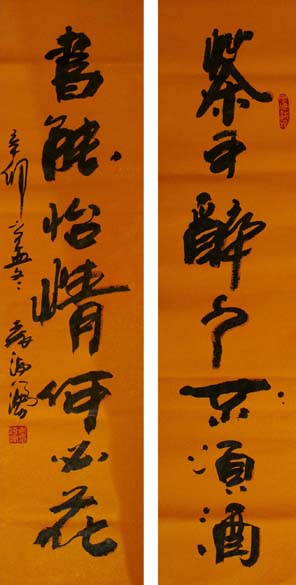 茶可醉人不須酒
書能怡情何必花
辛卯之孟冬